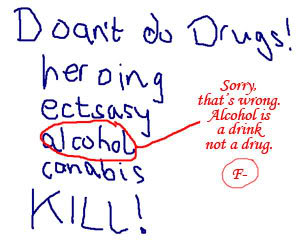 Doan't do Drugs!
heroing
ectsasy
alcohol
conabis
KILL!
Sorry,
that's wrong.
Alcohol is
a drink
not a drug.
F-